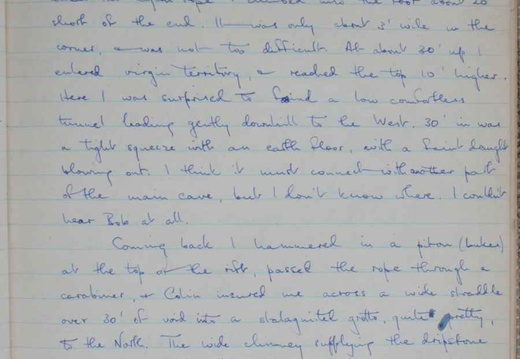 into the roof about 20
short of the end. It was only about 3' wide in the
corner, & was not too difficult. At about 30' up I
entered virgin territory, & reached the top 10' higher.
Here I was surprised to find a low comfortless
tunnel leading gently downhill to the West. 30' in was
a tight squeeze with an earth floor, with a faint draught
blowing out. I think it must connect with another part
of the main cave, but I don't know where. I couldn't
hear Bob at all.
Coming back I hammered in a piton
at the top of the rift, passed the rope through a
carabiner, & Colin insured me across a wide straddle
over 30' of void into a stalagmited grotto, quite pretty,
to the North. The wide chimney supplying the dripstone